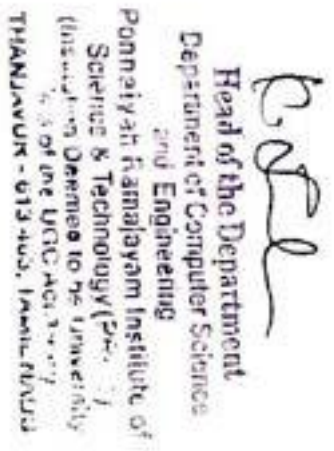 Head of the Department
Department of Computer Science
and Engineering
Ponnaiyah Ramajayam Institute of
Science & Technology (
(Institution Deemed to be University
of the UGC Act
THANJAVUR - 613 403, TAMIL NADU